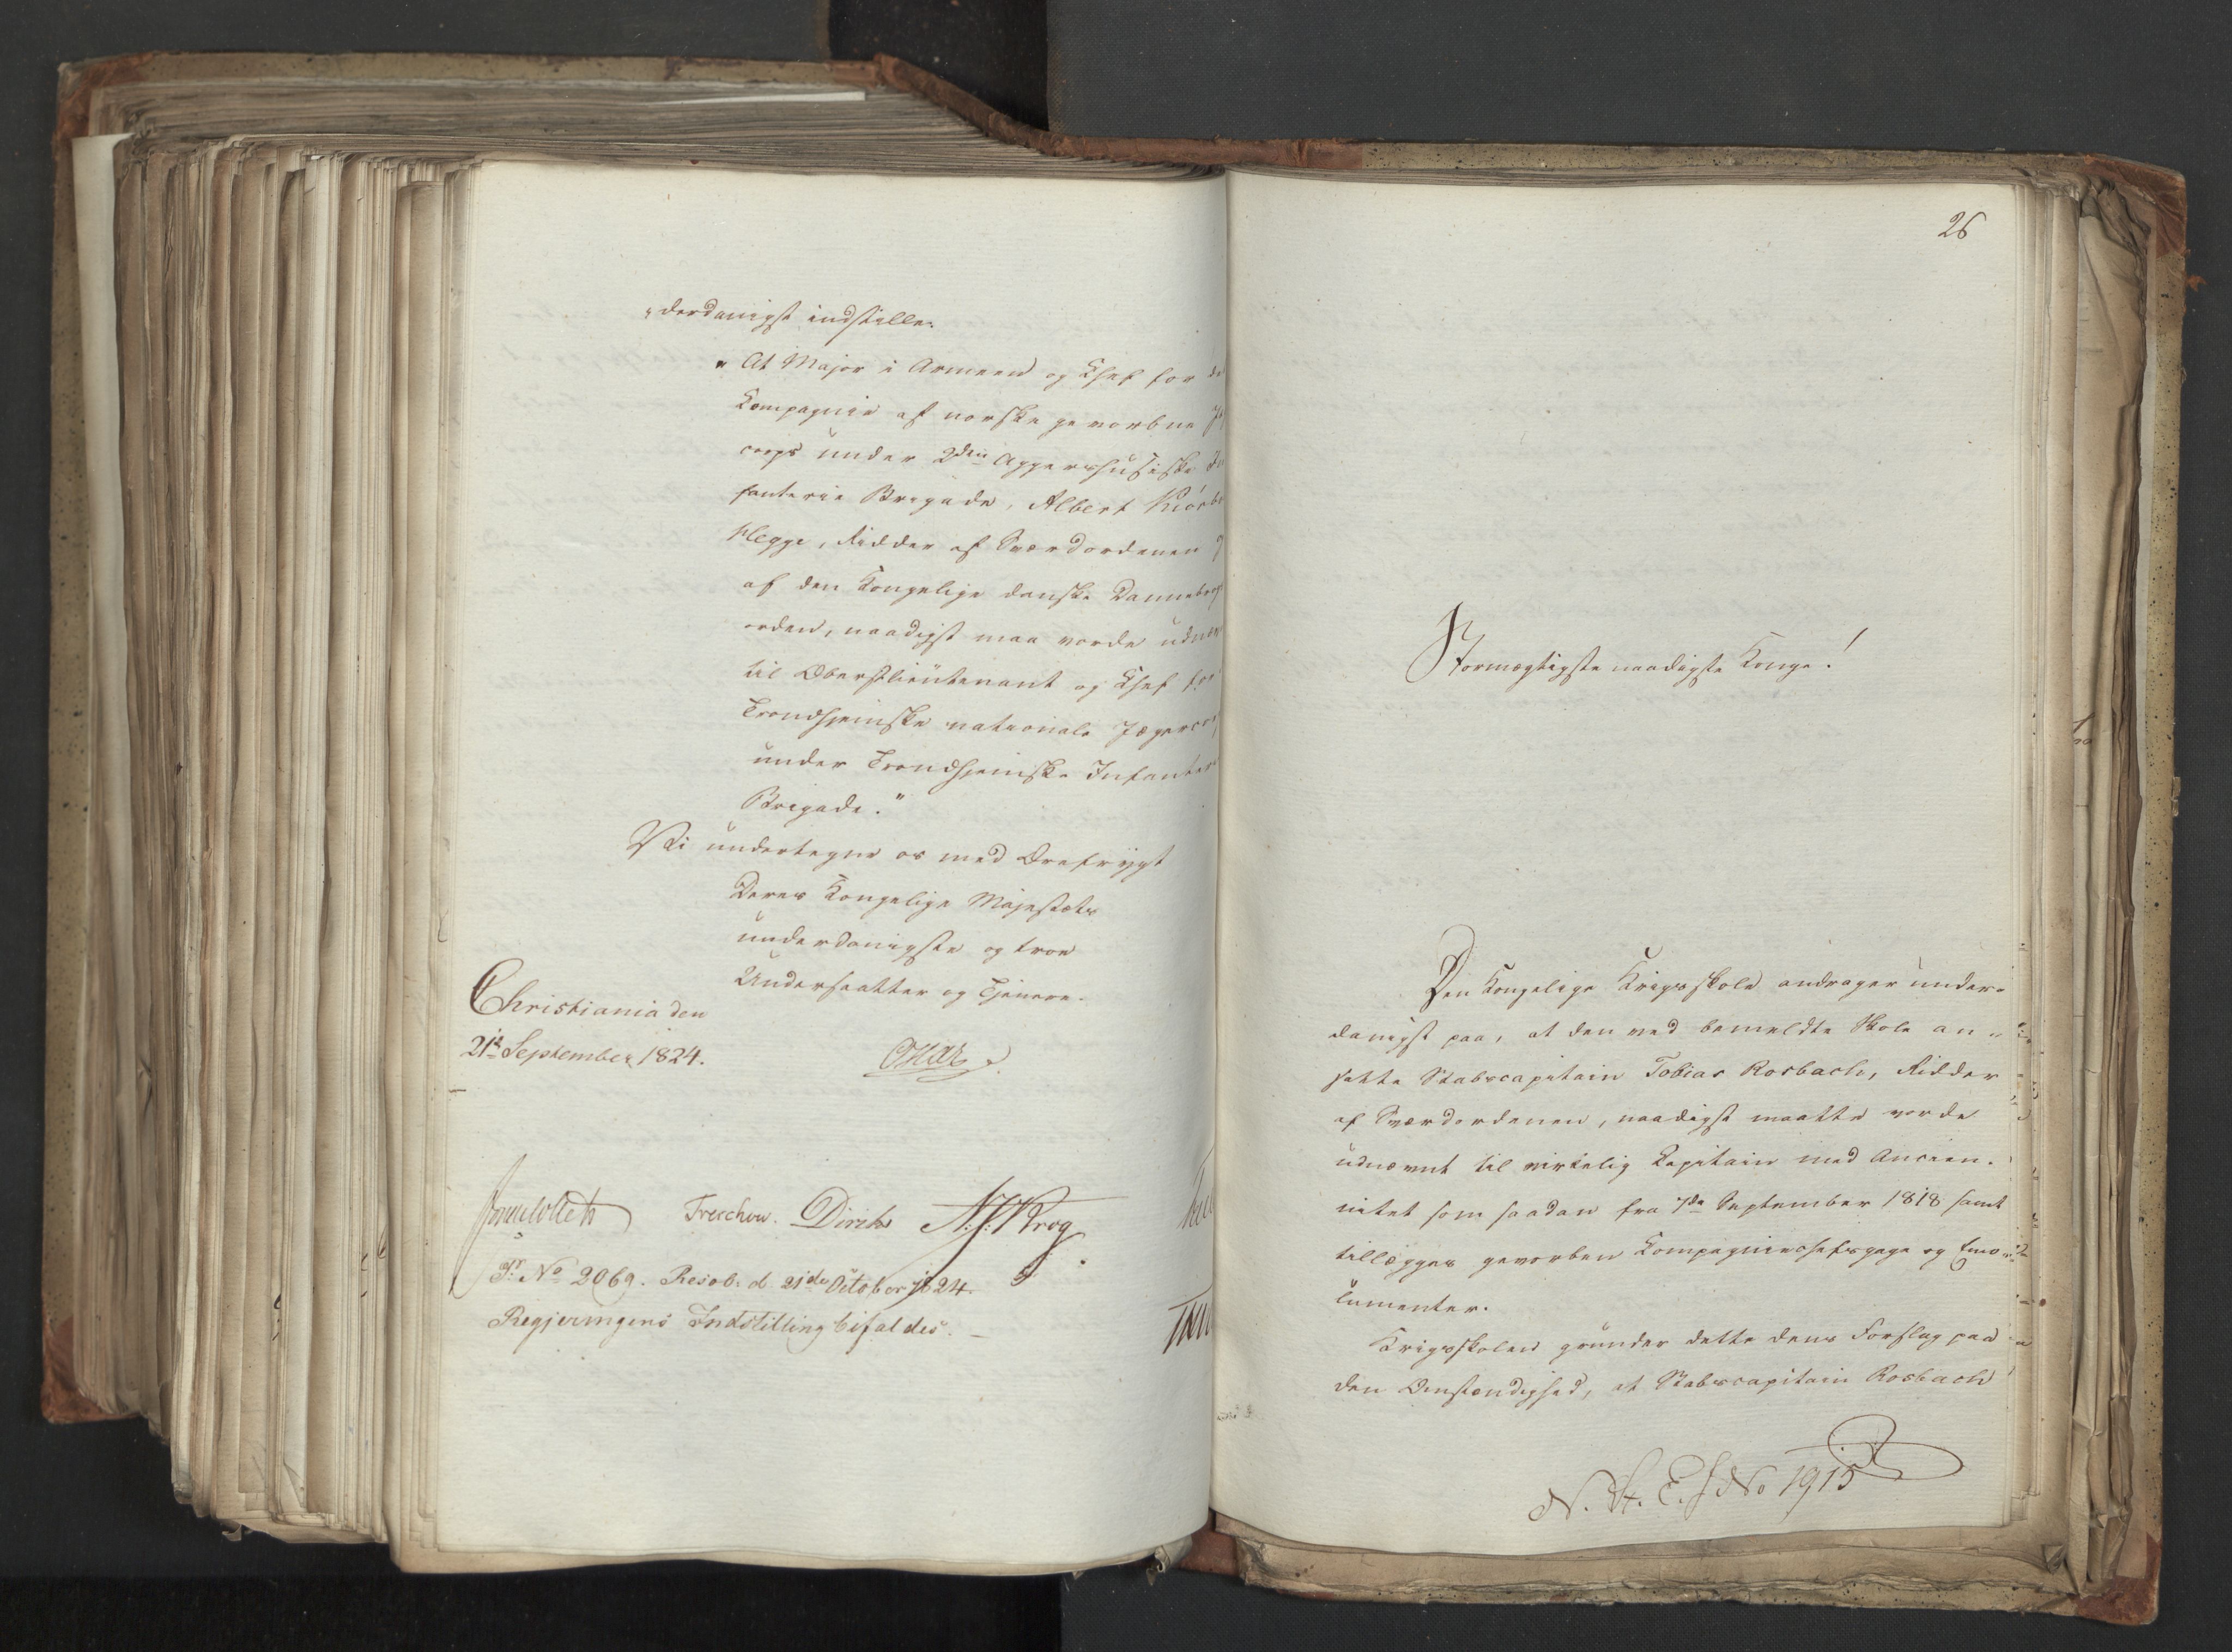 „derdanigst indstille:
„At Major i Armeen og Chef for
Compagnie af norske gevorbne
corps under 2den Aggershusiske
fanterie Brigade, Albert
Hegge, Ridder af Sværdordenen
af den Kongelige danske Dannebrogs
orden, naadigst maa vorde
til Oberstlieutenant og Chef for
Trondhjemske nationale
under Trondhjemske
Brigade."
Vi undertegne os med Ærefrygt
Deres Kongelige Majestæts
underdanigste og troe
Undersaatter og Tjenere.
Christiania den
21de September 1824.
Treschow. Diriks Krog
Pr. No 2069. Resol: d. 21de October 1824.
Regjeringens Indstilling bifaldes. –
26
Stormægtigste naadigste Konge!
Den Kongelige Krigsskole andrager under=
danigst paa, at den ved bemeldte Skole an=
satte Stabscapitain Tobias Rosbach, Ridder
af Sværdordenen, naadigst maatte vorde
udnævnt til virkelig Capitain med Ancien=
nitet som saadan fra 7de September 1818 samt
tillægges gevorben Compagniechefsgage og Emo=
lumenter.
Krigsskolen grunder dette dens Forslag paa
den Omstændighed, at Stabscapitain Rosbach
N. St. E. No 1915